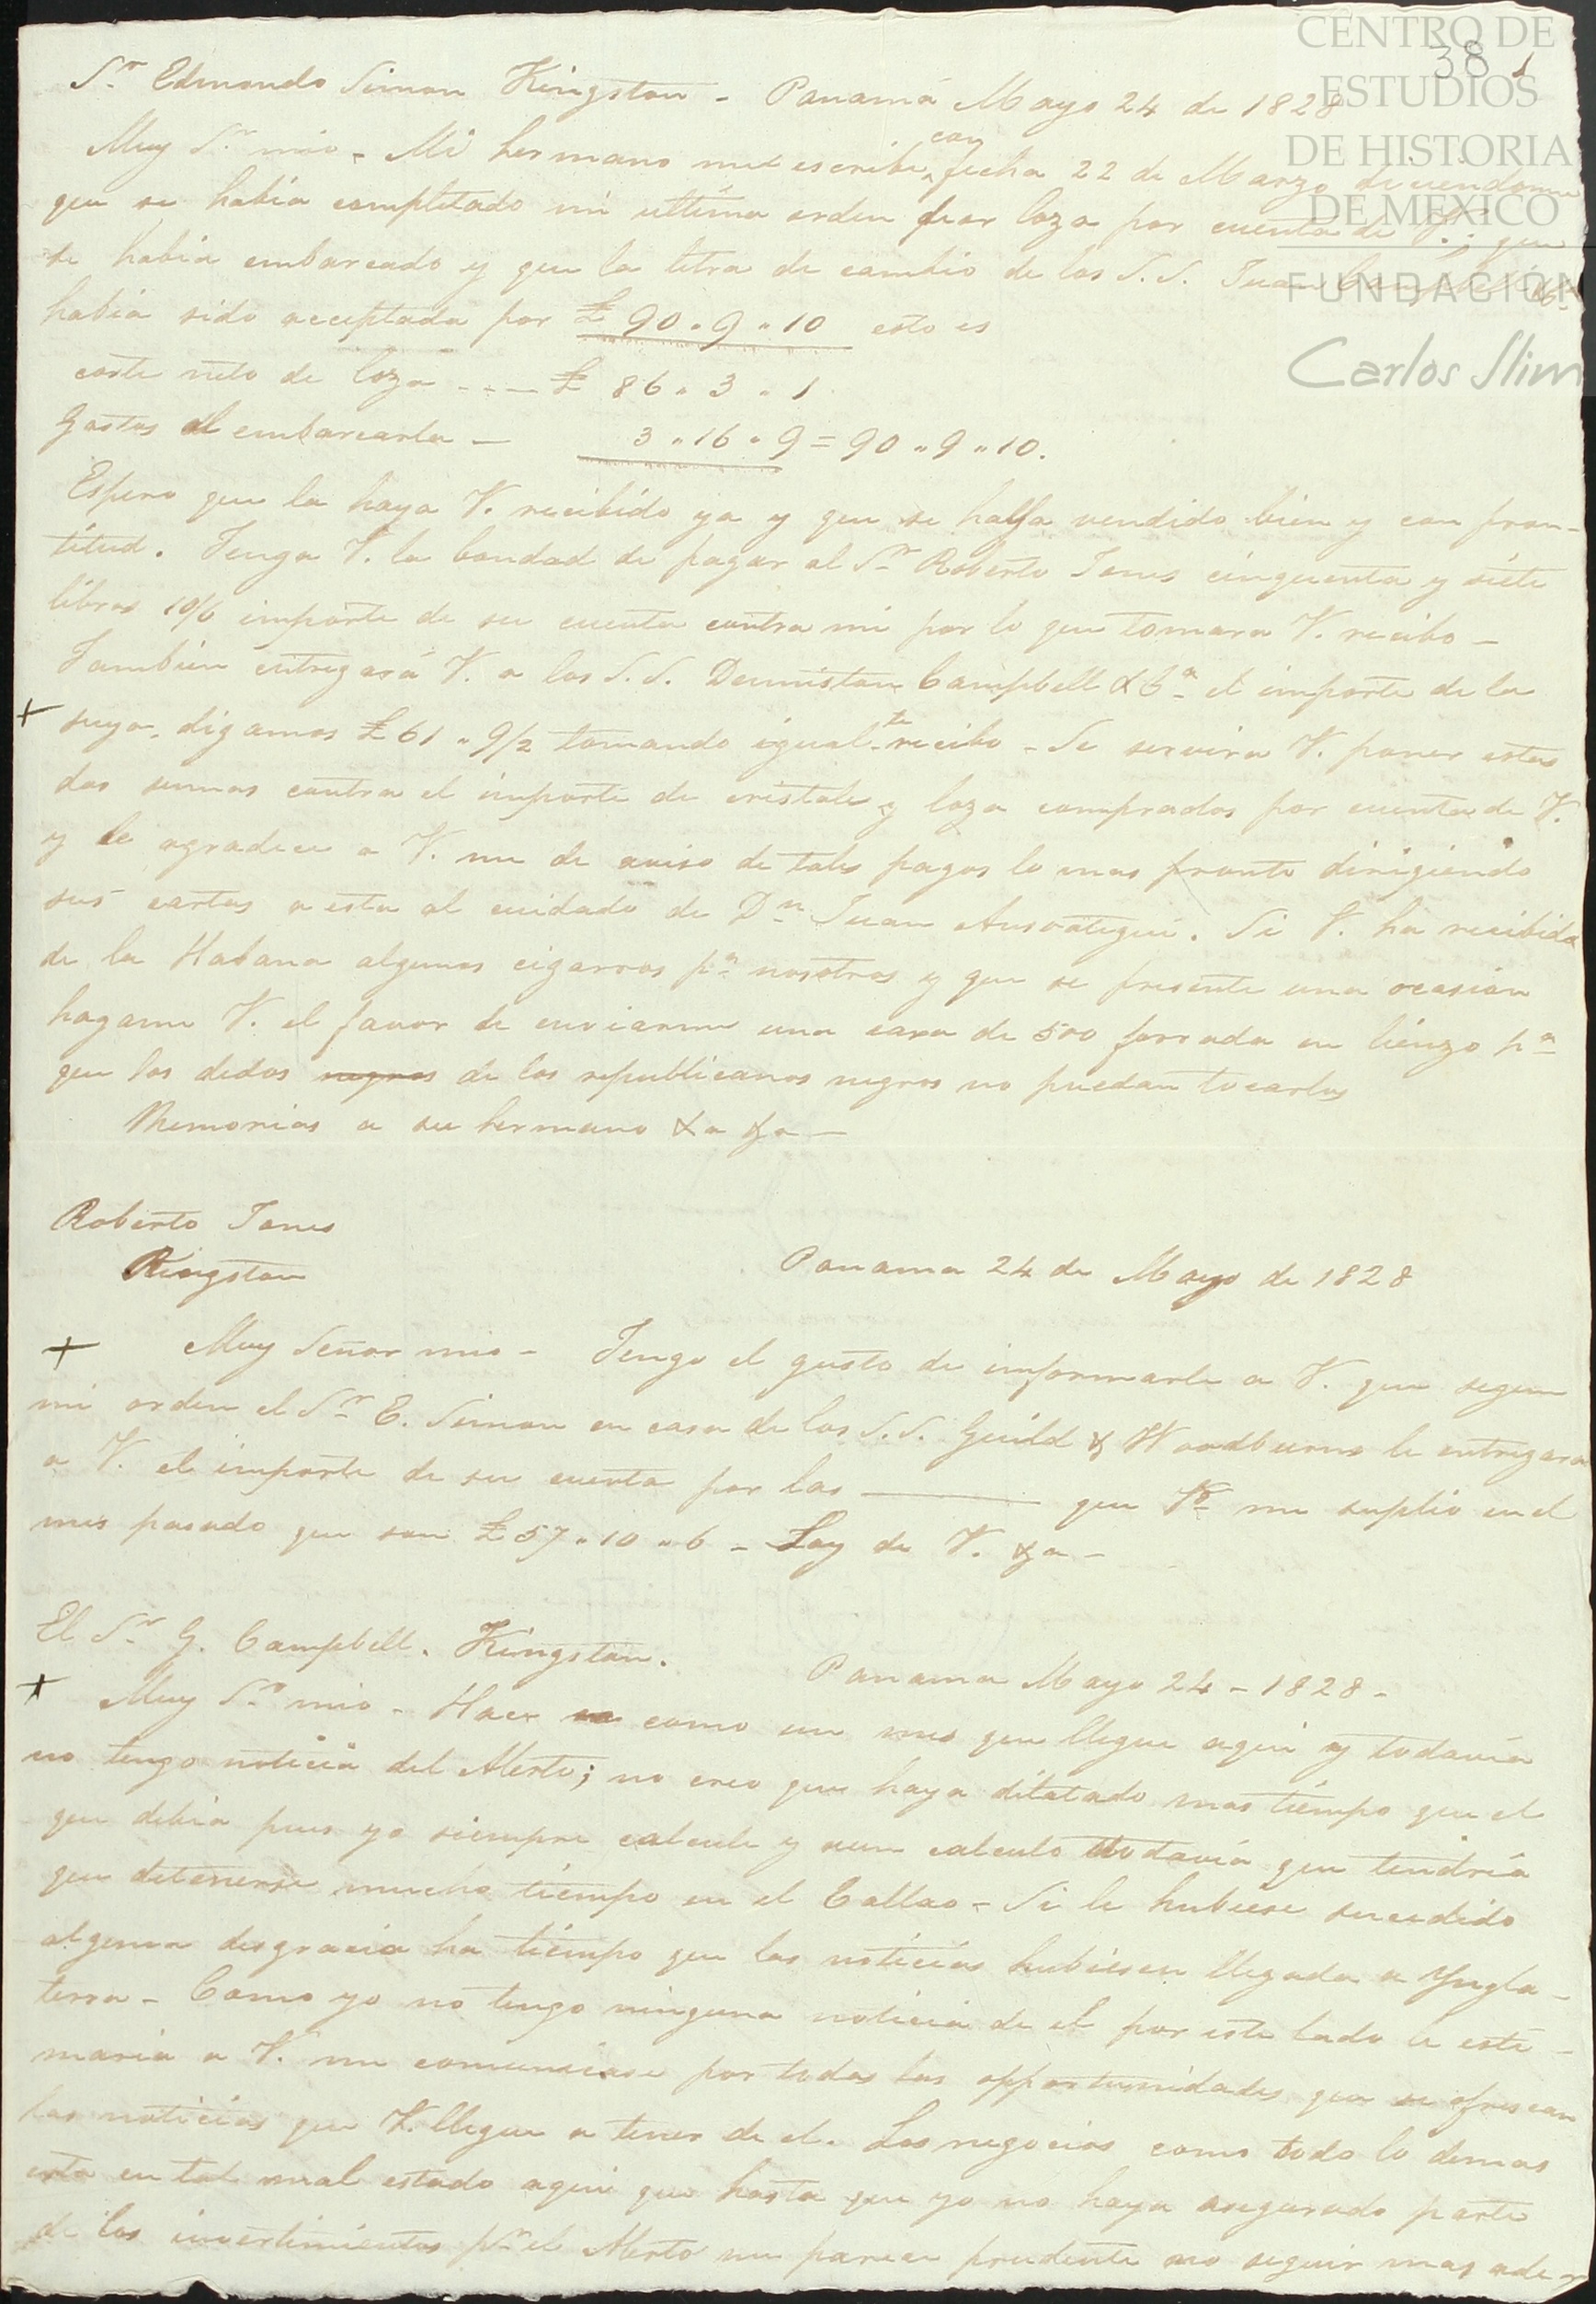 CENTRO DE
ESTUDIOS
DE HISTORIA
DE MEXICO
FUNDACIÓN
Carlos Slim
38 1
Sr. Edmondo Simon Kingston - Panamá Mayo 24 de 1828
Muy Sr. mio - Mi hermano me escribe con fecha 22 de Marzo diciendome
que se habia completado mi ultima orden por loza por cuenta de V.; que
se habia embarcado y que la letra de cambio de los S.S. Juan Campbell
habia sido aceptada por £ 90 " 9 " 10 esto es
coste neto de loza ---- £ 86 " 3 " 1
Gastos al embarcarla - 3 " 16 " 9 = 90 " 9 " 10.
Espero que la haya V. recibido ya y que se halla vendido bien y con pron-
titud. Tenga V. la bondad de pagar al Sr. Roberto Jones cinquenta y siete
libras 10/6 importe de su cuenta contra mi por lo que tomara V. recibo -
Tambien entregará V. a los S.S. Dennistan Campbell & Ca. el importe de la
+ suya, digamos £ 61 " 9/2 tomando igualte. recibo - Se servira V. poner estas
dos sumas contra el importe de cristales y loza comprados por cuenta de V.
y le agradece a V. me de aviso de tales pagos lo mas pronto dirigiendo
sus cartas a esta al cuidado de Dn. Juan Ansoategui. Si V. ha recibido
de la Habana algunos cigarros pa. nosotros y que se presente una ocasion
hagame V. el favor de enviarme una caxa de 500 forrada en lienzo pa.
que los dedos negros de los republicanos negros no puedan tocarlos
Memorias a su hermano &a &a -
Roberto Jones
Kingston
Panama 24 de Mayo de 1828
+ Muy Señor mio - Tengo el gusto de informarle a V. que segun
mi orden el Sr. E. Simon en casa de los S.S. Guild & Woodburne le entregara
a V. el importe de su cuenta por las ——— que V. me suplio en el
mes pasado que son £ 57 " 10 " 6 - Soy de V. &a -
El Sr. G. Campbell. Kingston.
Panama Mayo 24 - 1828 -
+ Muy Sr. mio - Hace como un mes que llegue aqui y todavia
no tengo noticia del Merto; no creo que haya dilatado mas tiempo que el
que debia pues yo siempre calcule y aun calculo todavia que tendria
que detenerse mucho tiempo en el Callao - Si le hubiese sucedido
alguna desgracia ha tiempo que las noticias hubiesen llegada a Yngla-
terra - Como yo no tengo ninguna noticia de el por este lado le esti-
maria a V. me comunicase por todas las opportunidades que se ofrescan
las noticias que V. llegue a tener de el. Los negocios como todo lo demas
esta en tal mal estado aqui que hasta que yo no haya asegurado parte
de los invertimientos pr. el Merto me parece prudente no seguir mas ade-